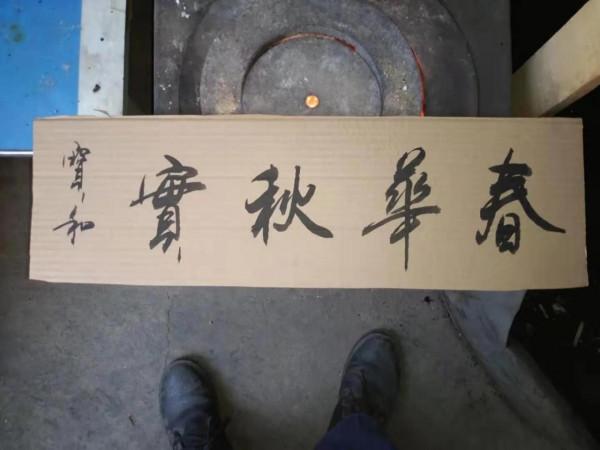 春華秋實
寶和